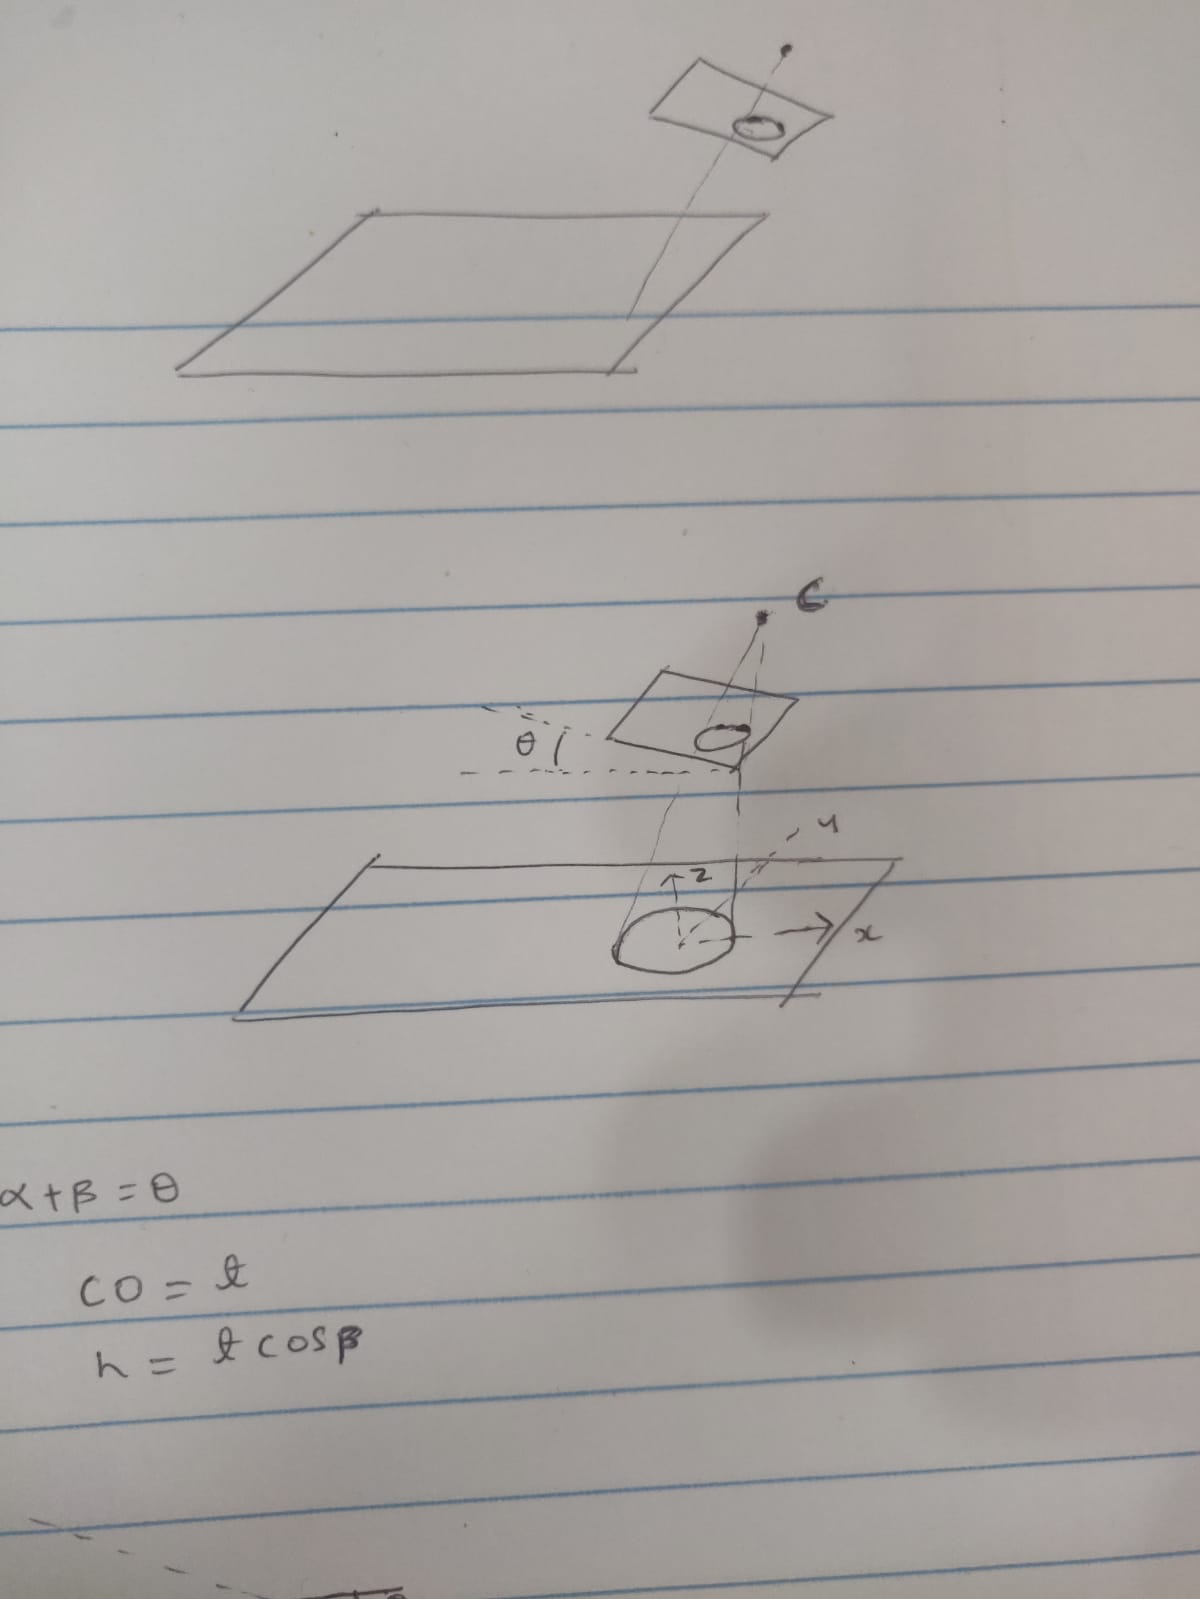 C
θ
y
z
x
α+β=θ
CO = t
h = t cosβ